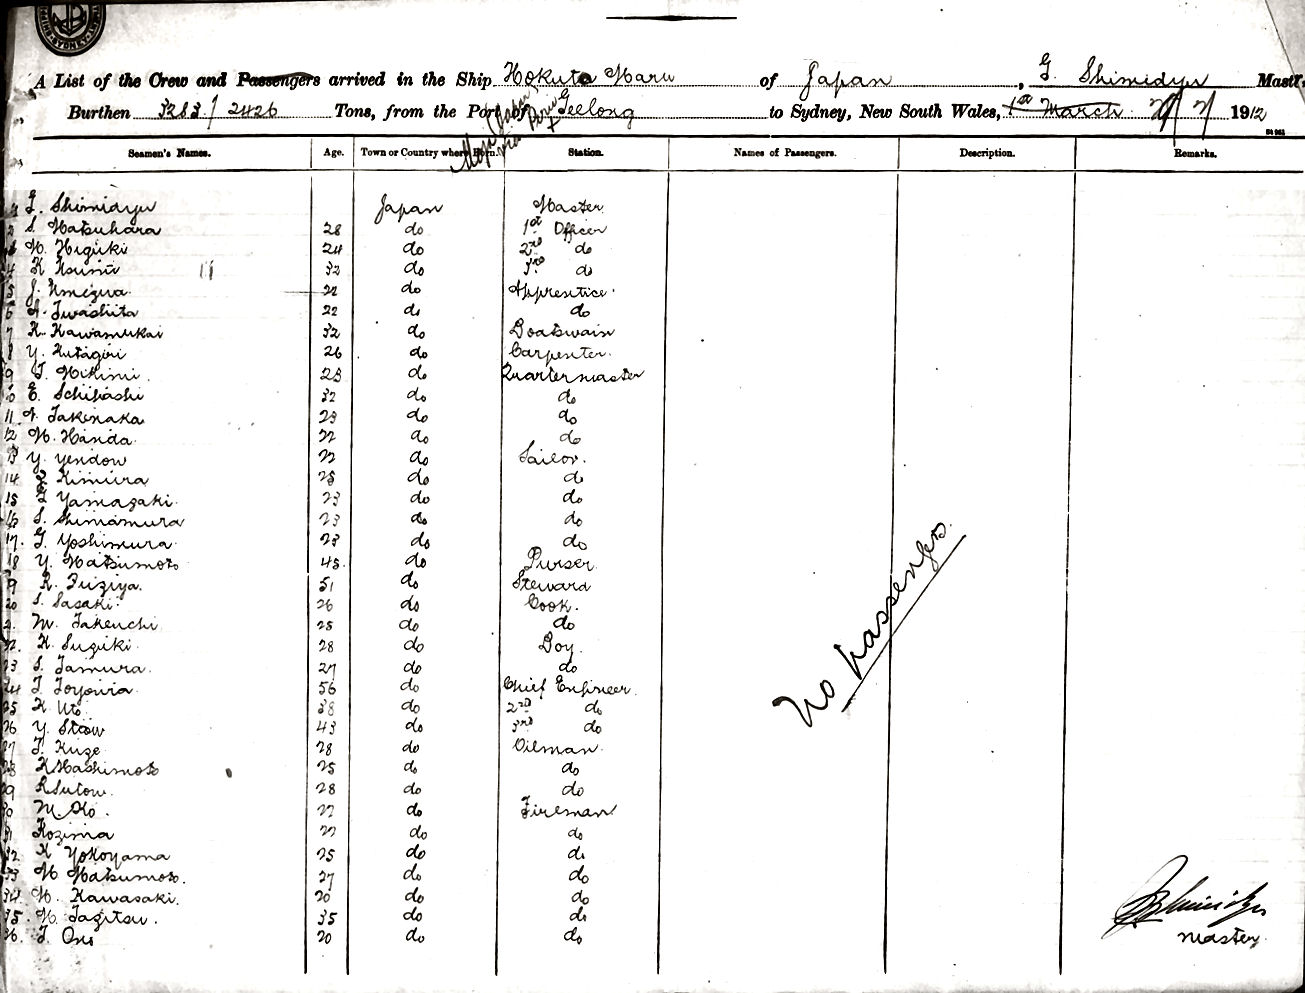 A List of the Crew and Passengers arrived in the Ship Hokuto Maru of Japan, G. Shimidzu Master,
Burthen 3283/2426 Tons, from the Port of Geelong to Sydney, New South Wales, 1st March 7 1912
Seamen's Names. Age. Town or Country where Born. Station. Names of Passengers. Description. Remarks.
G. Shimidzu Japan Master
2 S. Matsuhara 28 do 1st Officer
M. Higuki 24 do 2nd do
4 K 32 do 3rd do
5 J. Umezua 22 do Apprentice
6 Iwashita 22 do do
7 K. Kawamukai 32 do Boatswain
8 Y. Kutagiri 26 do Carpenter
9 T. Mikimi 23 do Quartermaster
10 E. Schibashi 32 do do
11 Takenaka 23 do do
12 M. Handa 22 do do
13 Y. Yendow 22 do Sailor.
14 Kimura 25 do do
15 Yamazaki 23 do do
16 S. Shimamura 23 do do
17. G. Yoshimura 23 do do
18 Y. Matsumoto 45 do Purser
19 K. Fuziya. 51 do Steward
20 S. Sasaki 26 do Cook.
2. M. Takeuchi 25 do do
22. K. Suziki 28 do Boy.
23 S. Tamura. 27 do do
24 T. Toyowa 56 do Chief Engineer
25 K Uto 38 do 2nd do
26 Y. Stow 43 do 3rd do
27 T. Kuze 28 do Oilman
28 K Hashimoto 25 do do
29 Sutow. 28 do do
30 M. Ko. 22 do Fireman
31 Kozima 22 do do
32. K Yokoyama 25 do do
33 M Matsumoto. 27 do do
34 M. Kawasaki. 20 do do
35. M. Tagitsu. 35 do do
36. T. Ono 20 do do
No passengers.
G Shimidzu
Master